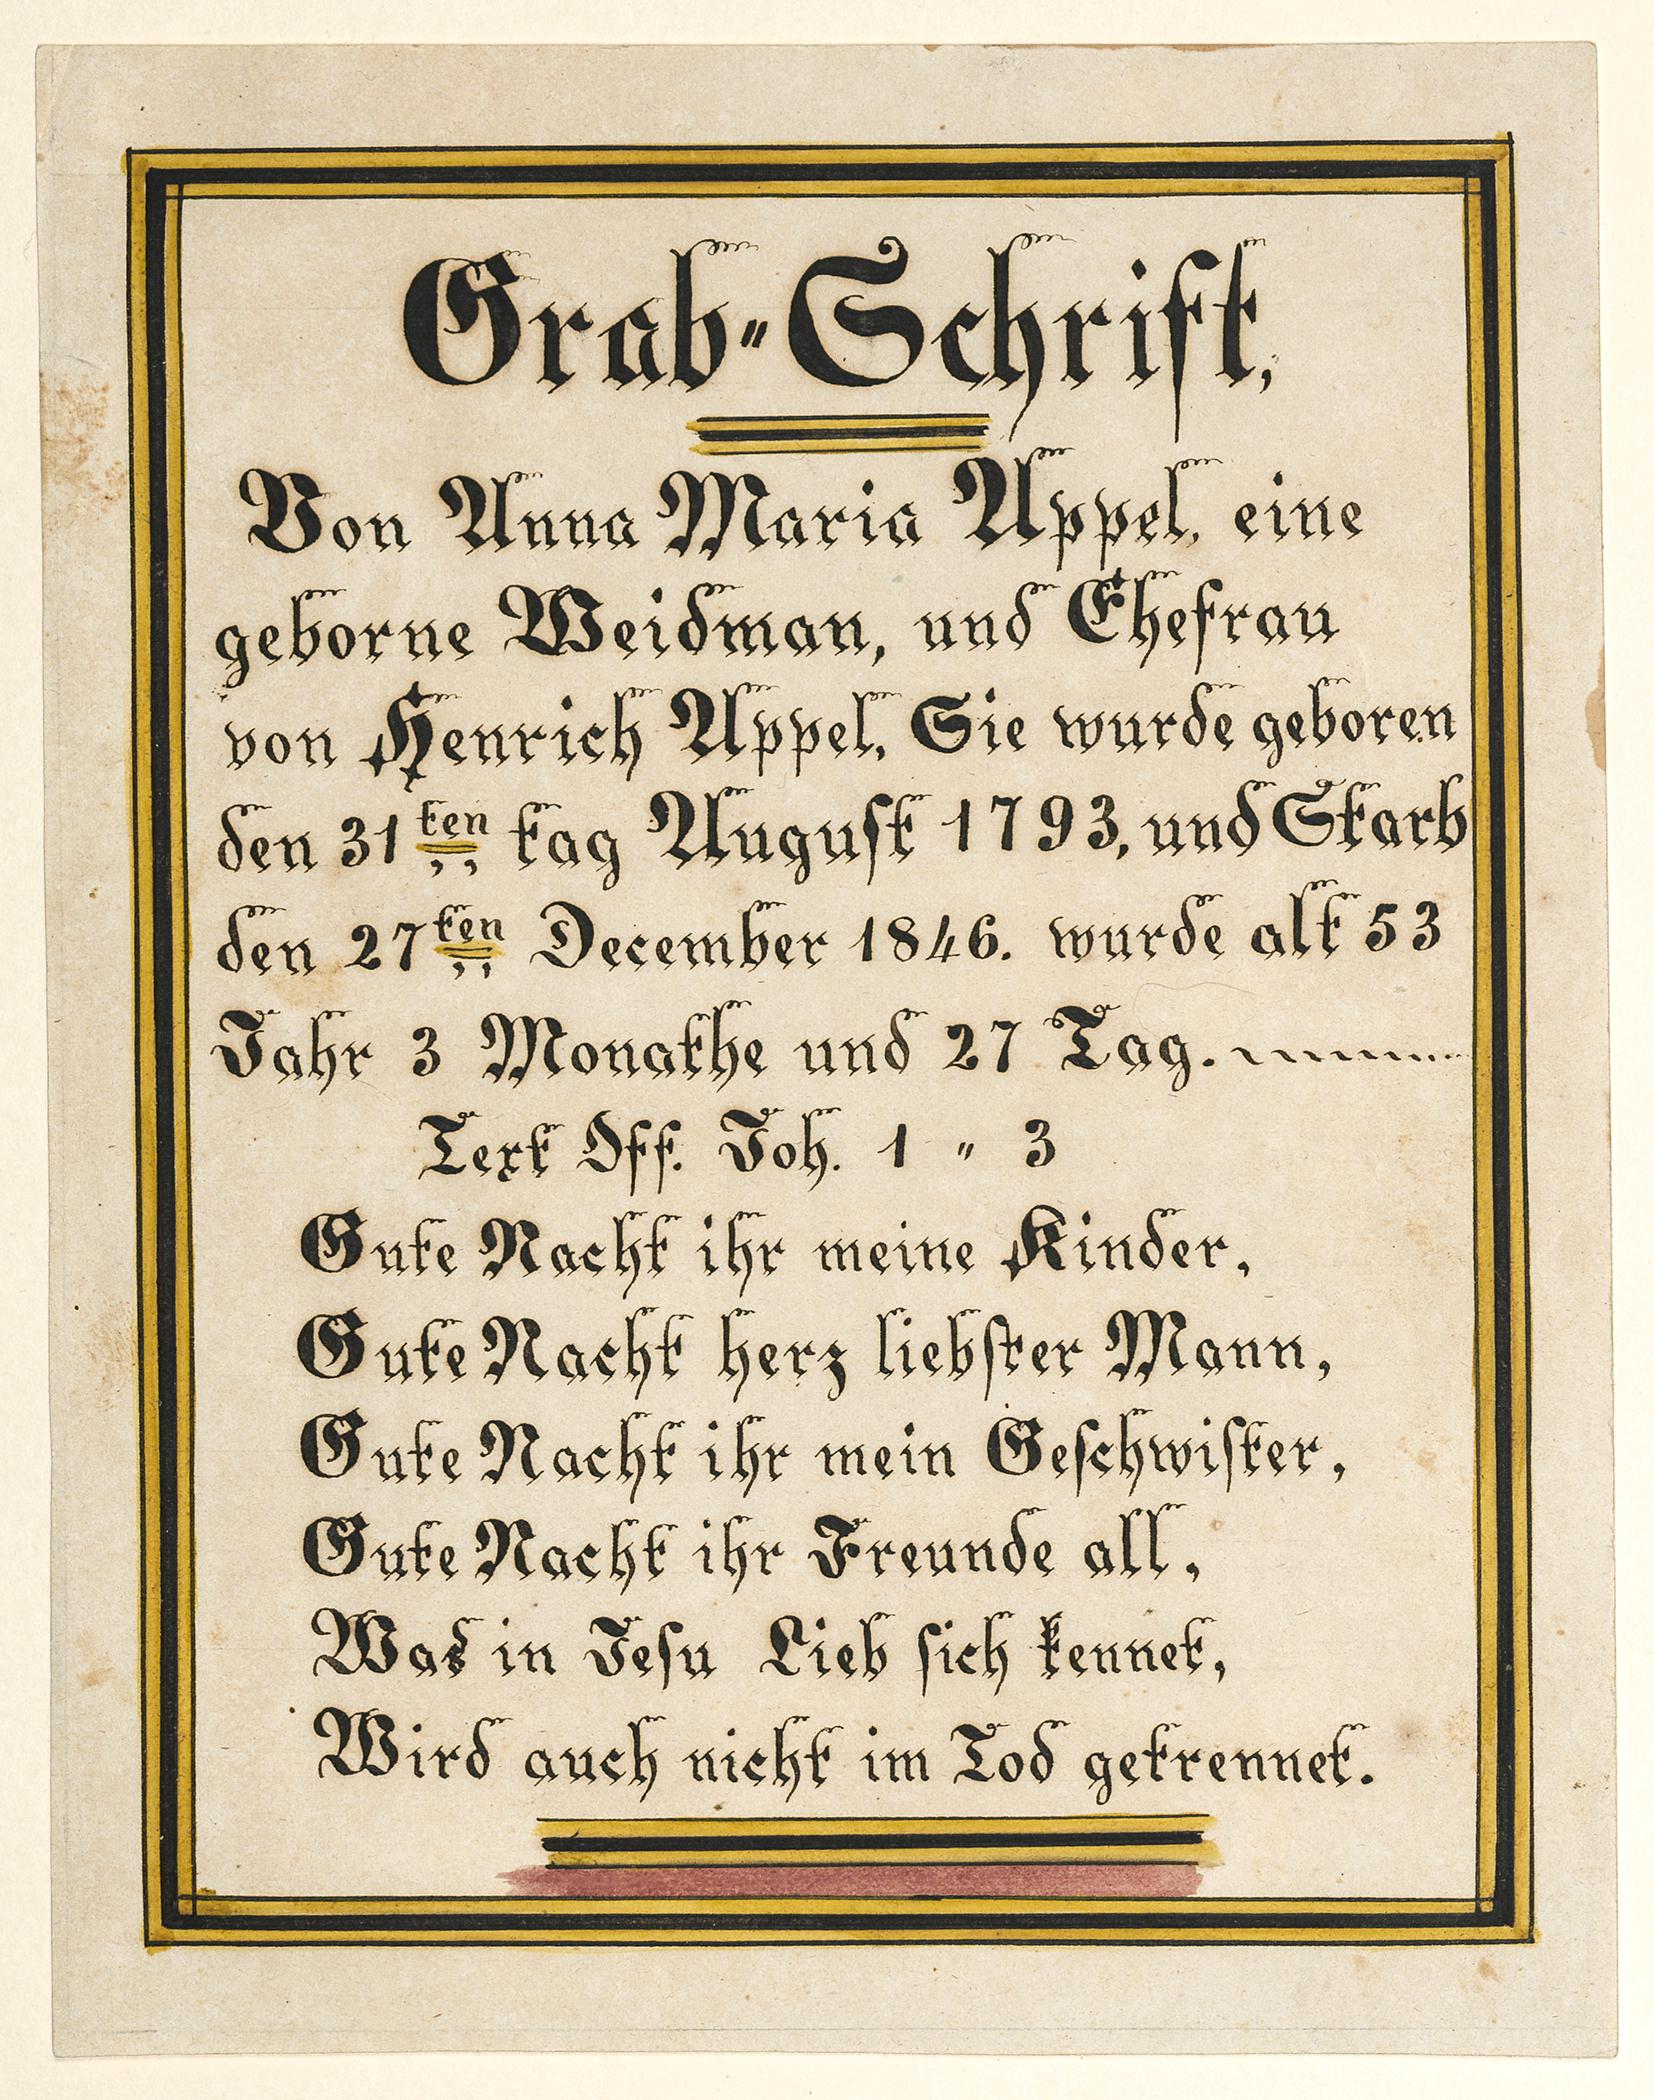 Grab=Schrift,
Von Anna Maria Appel, eine
geborne Weidman, und Ehefrau
von Henrich Appel, Sie wurde geboren
den 31ten tag August 1793, und Starb
den 27ten December 1846. wurde alt 53
Jahr 3 Monathe und 27 Tag.
Text Off. Joh. 1 " 3
Gute Nacht ihr meine Kinder,
Gute Nacht herz liebster Mann,
Gute Nacht ihr mein Geschwister,
Gute Nacht ihr Freunde all,
Was in Jesu Lieb sich kennet,
Wird auch nicht im Tod getrennet.